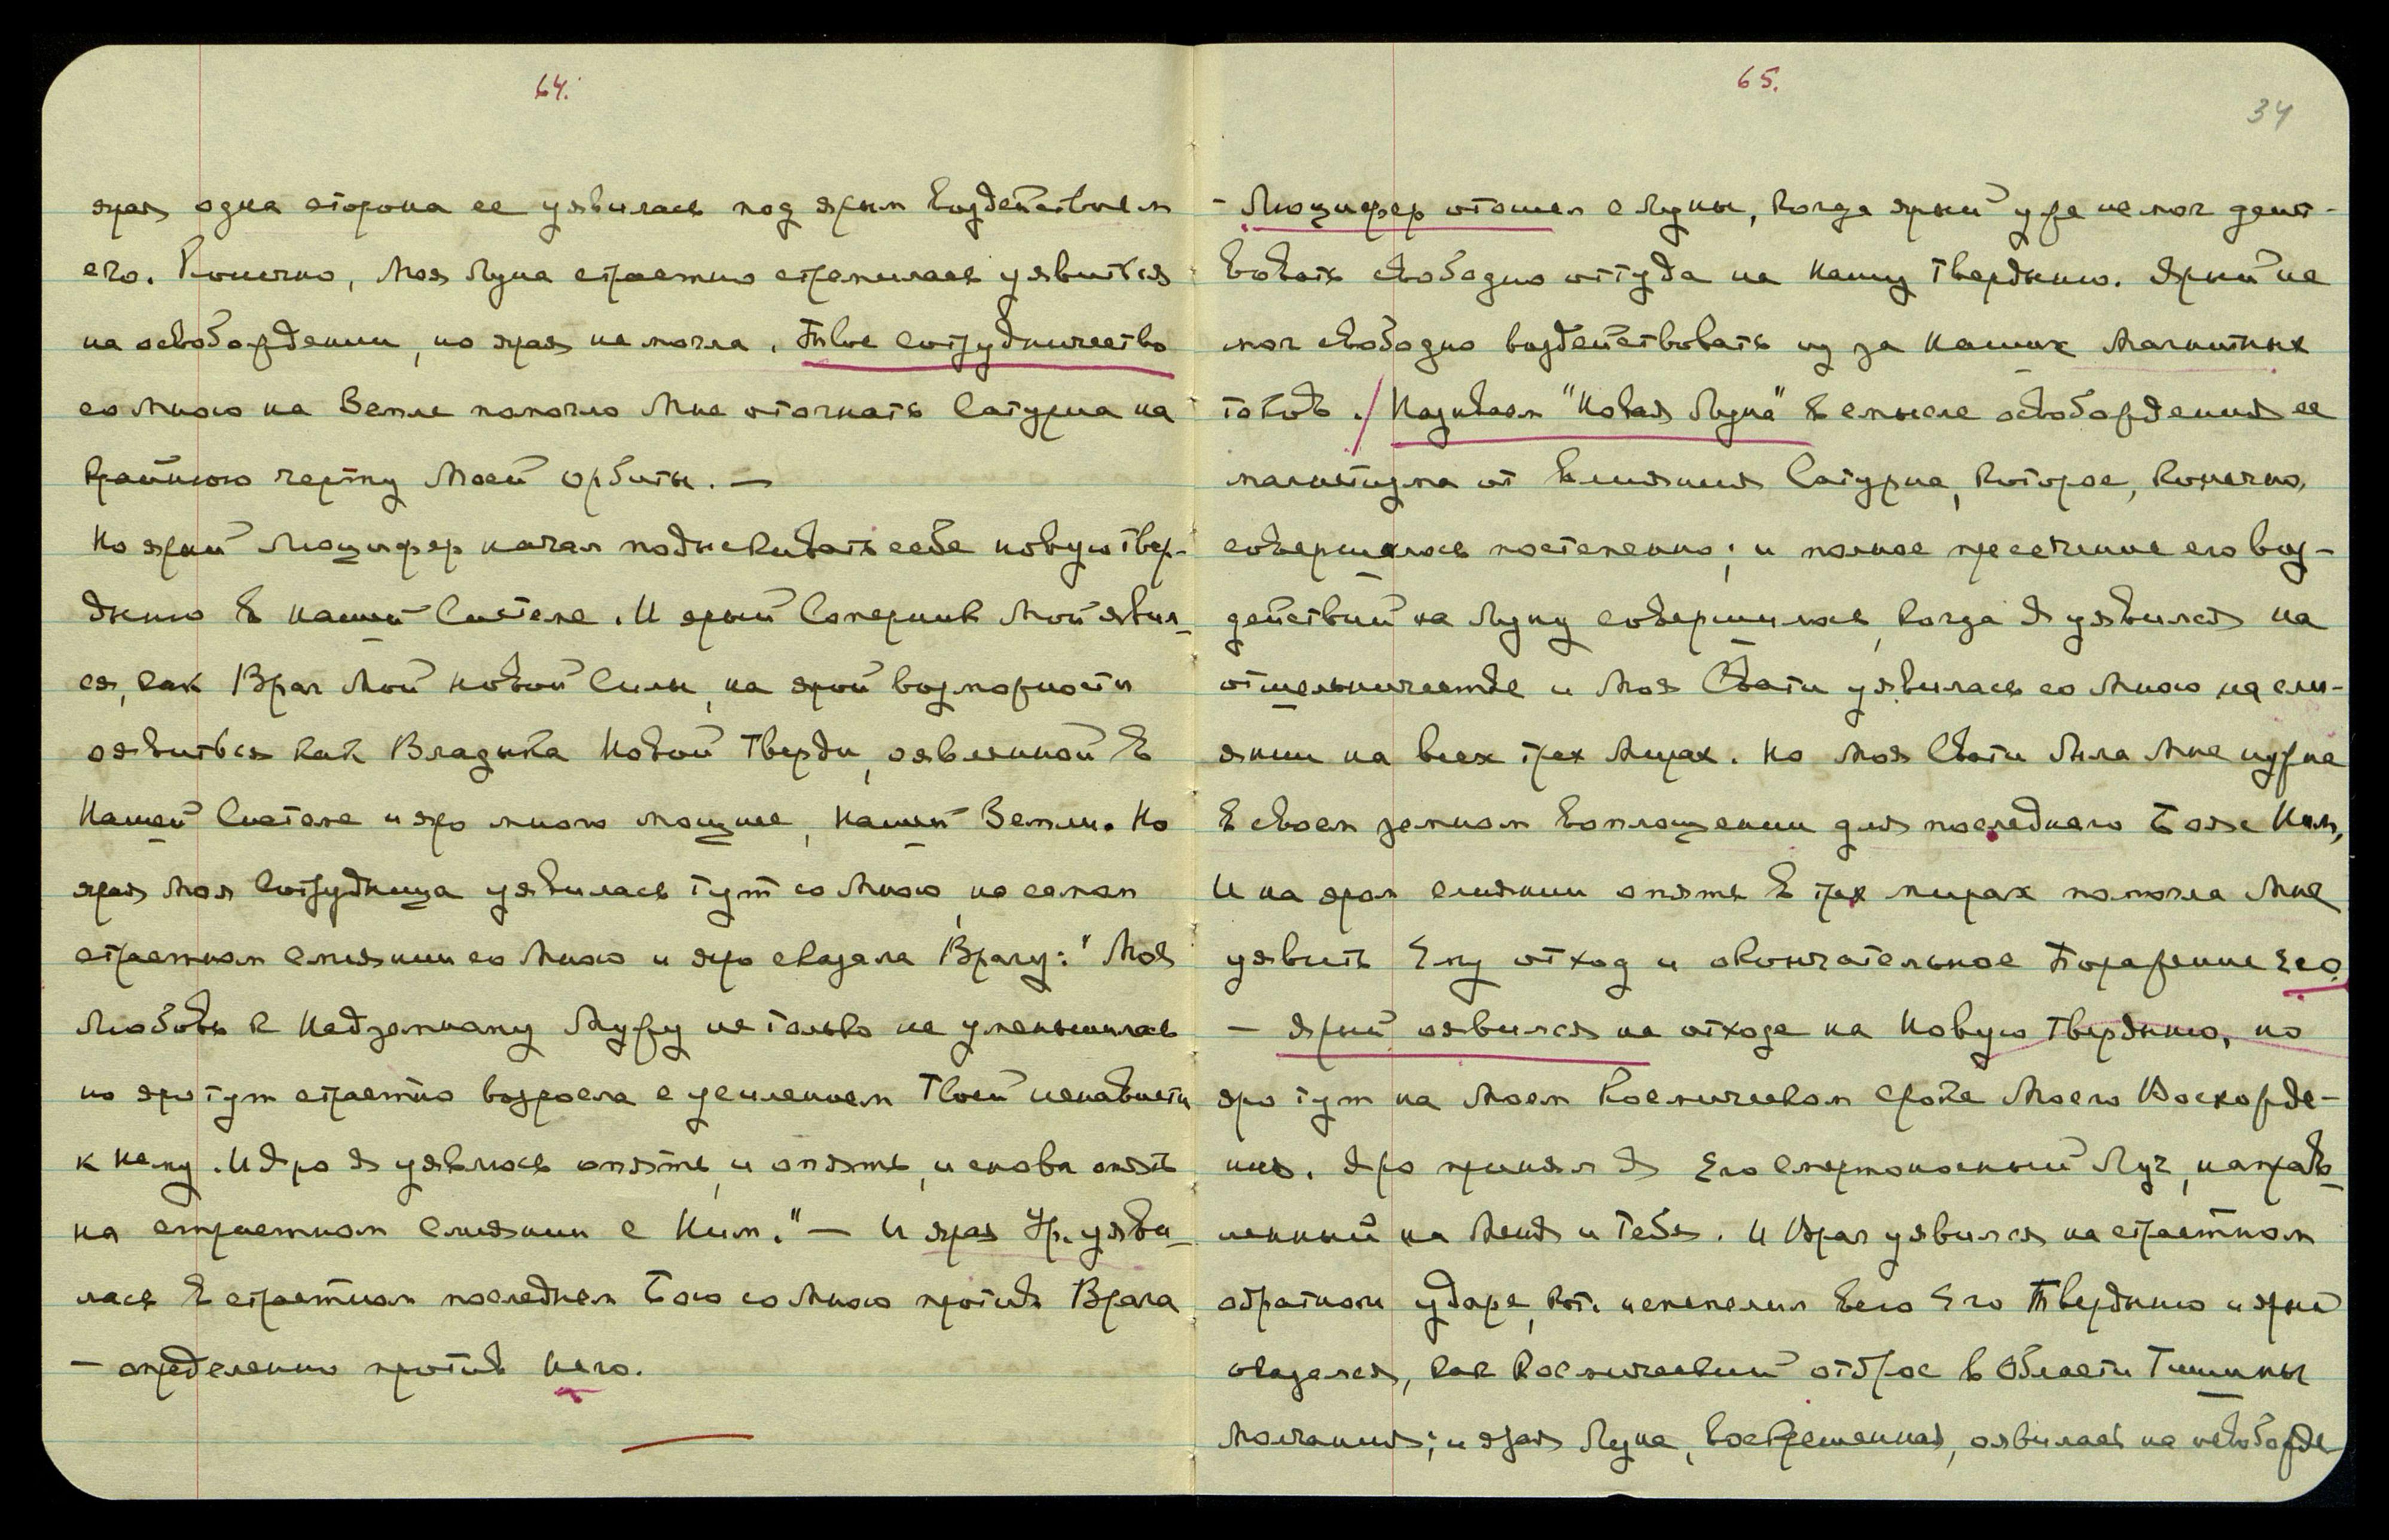 64.
ярая одна сторона ее уявилась под ярым воздействием
его. Конечно, Моя Луна страстно стремилась уявиться
на освобождении, но ярая не могла. Твое сотрудничество
со Мною на Земле помогло Мне отогнать Сатурна на
крайнюю черту Моей орбиты. —
Но ярый Люцифер начал подыскивать себе новую твер-
дыню в нашей Системе. И ярый Соперник Мой явил-
ся, как Враг Мой новой Силы, на ярой возможности
оявиться как Владыка Новой Тверди, оявленной в
Нашей Системе и яро много мощнее, нашей Земли. Но
ярая Моя Сотрудница уявилась тут со Мною, на самом
страстном слиянии со Мною и яро сказала Врагу: "Моя
Любовь к Надземному Мужу не только не уменьшилась
но яро тут страстно возросла с усилением Твоей ненависти
к Нему. И яро Я уявлюсь опять, и опять, и снова опять
на страстном слиянии с Ним." — И ярая Ур. уяви-
лась в страстном последнем Бою со Мною против Врага
— определенно против Него.
65.
34
- Люцифер отошел с Луны, когда ярый уже не мог дейст-
вовать свободно оттуда на Нашу Твердыню. Ярый не
мог свободно воздействовать из за Наших Магнитных
токов. / Называем "Новая Луна" в смысле освобождения ее
магнетизма от влияния Сатурна, которое, конечно,
совершалось постепенно; и полное пресечение его воз-
действий на Луну совершилось, когда Я уявился на
отшельничестве и Моя Свати уявилась со Мною на сли-
янии на всех трех Мирах. Но Моя Свати была Мне нужна
в своем земном воплощении для последнего Боя с Ним,
И на яром слиянии опять в трех мирах помогла Мне
уявить Ему отход и окончательное Поражение Его
— Ярый оявился на отходе на Новую Твердыню, но
яро тут на Моем Космическом сроке Моего Восхожде-
ния. Яро принял Я Его Смертоносный Луч, направ-
ленный на Меня и Тебя. И Враг уявился на страстном
обратном ударе, кот. испепелил Всю Его Твердыню и ярый
оказался, как Космический отброс в Области Тишины
Молчания; и ярая Луна, воскрешенная, оявилась на